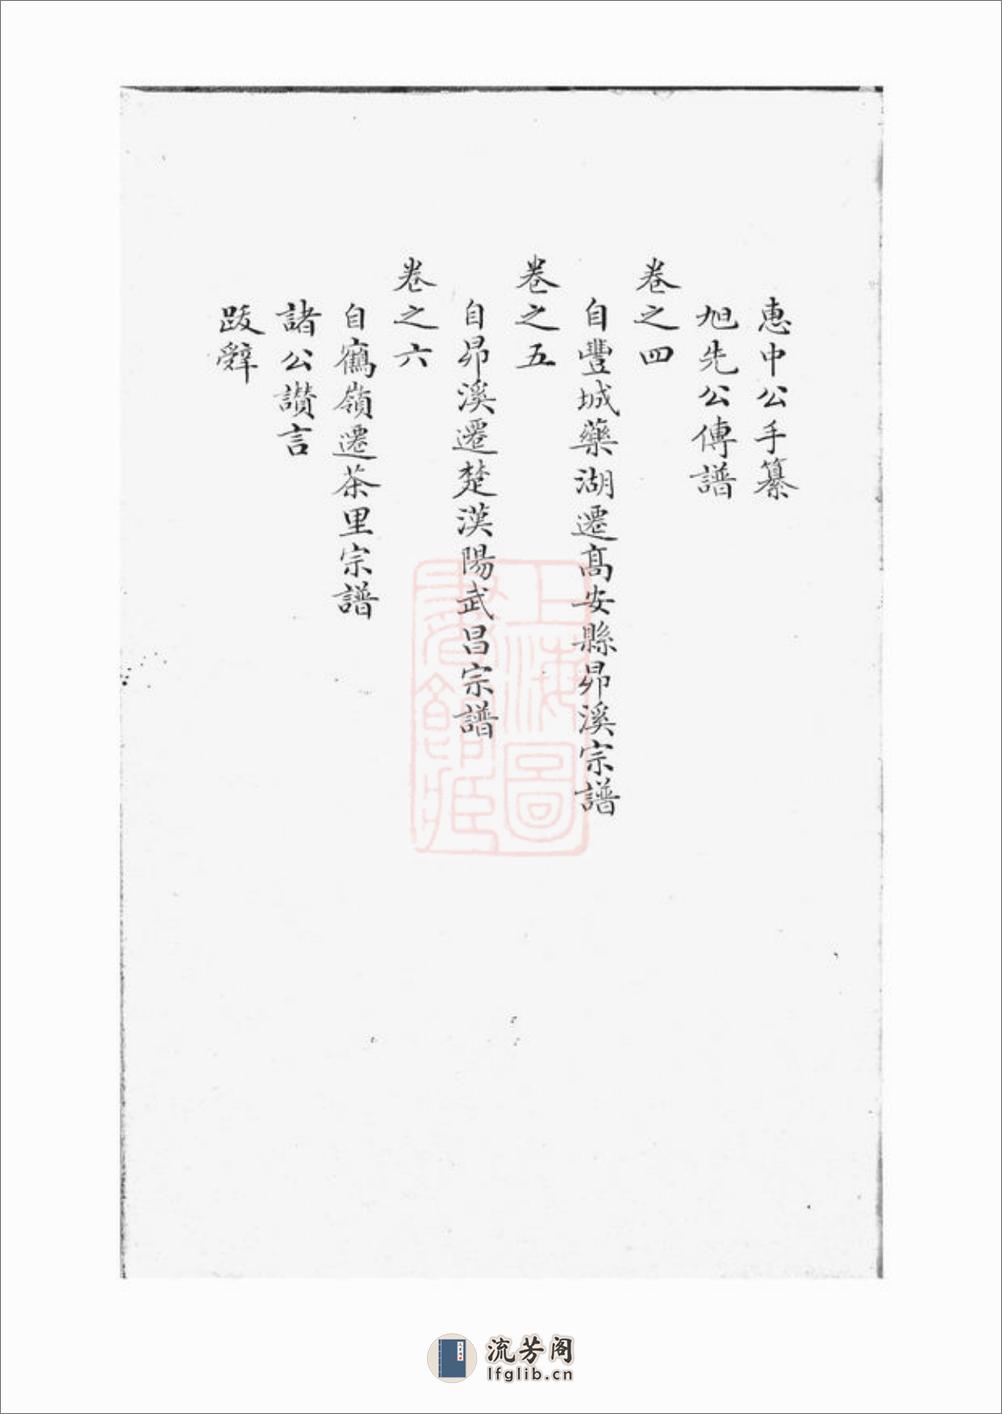 惠中公手纂
旭先公傳譜
卷之四
自豐城藥湖遷髙安縣昴溪宗譜
卷之五
自昴溪遷楚漢陽武昌宗譜
卷之六
自鶴嶺遷茶里宗譜
諸公讃言
跋辭
上海圖
書館藏
流芳阁
lfglib.cn